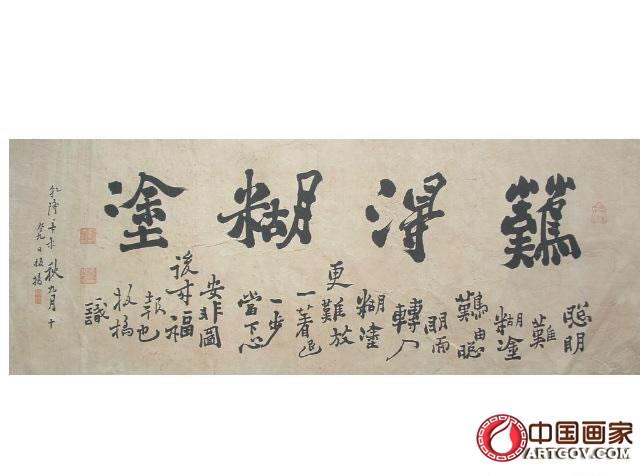 難得糊塗
聰明
難
糊塗
難由聰
明而
轉入
糊塗
更難放
一著退
一步
當下心
安非圖
後來福
報也
板橋
識
乾隆辛未秋九月十
有九日板橋
中国画家
ARTGOV.COM